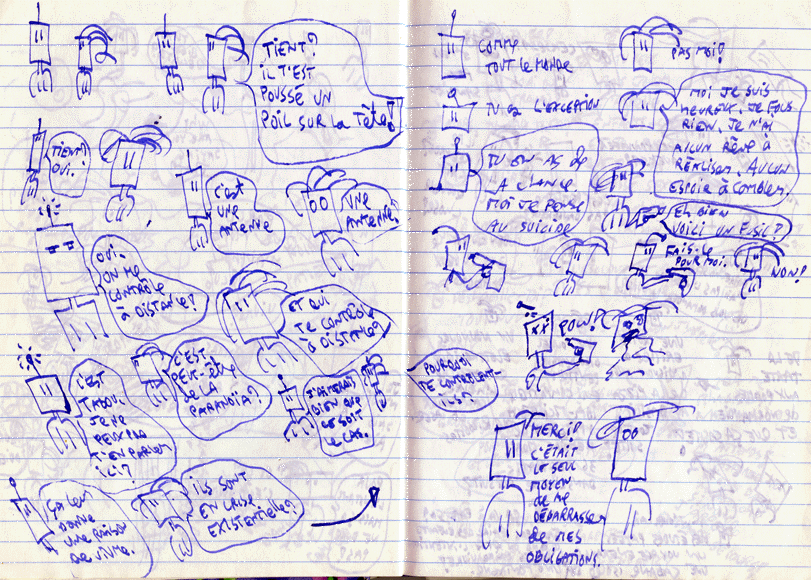 TIENT?
IL T'EST
POUSSÉ UN
POIL SUR LA TÊTE!
TIENT!
OUI!
C'EST
UNE
ANTENNE
UNE
ANTENNE?
OUI.
ON ME
CONTRÔLE
À DISTANCE!
ET QUI
TE CONTRÔLE
À DISTANCE?
C'EST
TABOU.
JE NE
PEUX PAS
T'EN PARLER
ICI!
C'EST
PEUT-ÊTRE
DE LA
PARANOÏA?
J'AIMERAIS
BIEN QUE
CE SOIT
LE CAS.
POURQUOI
TE CONTRÔLENT-
ILS?
ÇA LEUR
DONNE
UNE RAISON
DE VIVRE.
ILS SONT
EN CRISE
EXISTENTIELLE?
COMME
TOUT LE MONDE
PAS MOI!
TU ES L'EXCEPTION
MOI JE SUIS
HEUREUX. JE FOUS
RIEN. JE N'AI
AUCUN RÊVE À
RÉALISER. AUCUN
ESPOIR À COMBLER.
TU EN AS DE
LA CHANCE.
MOI JE PENSE
AU SUICIDE
EH BIEN
VOICI UN FUSIL!
FAIS-LE
POUR MOI.
NON!
POW!
MERCI!
C'ÉTAIT
LE SEUL
MOYEN
DE ME
DÉBARRASSER
DE MES
OBLIGATIONS.